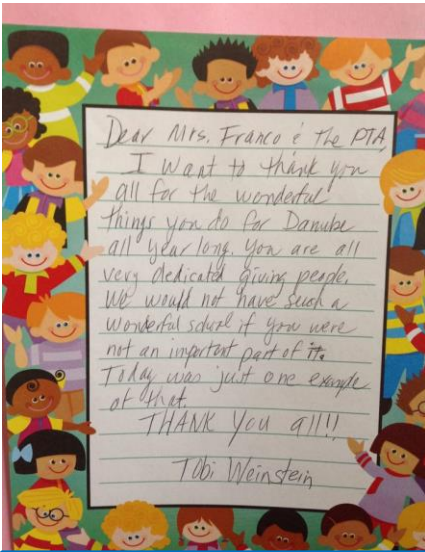 Dear Mrs. Franco & the PTA,
I want to thank you
all for the wonderful
things you do for Danube
all year long. You are all
very dedicated giving people.
We would not have such a
wonderful school if you were
not an important part of it.
Today was just one example
of that.
THANK YOU all!!
Tobi Weinstein